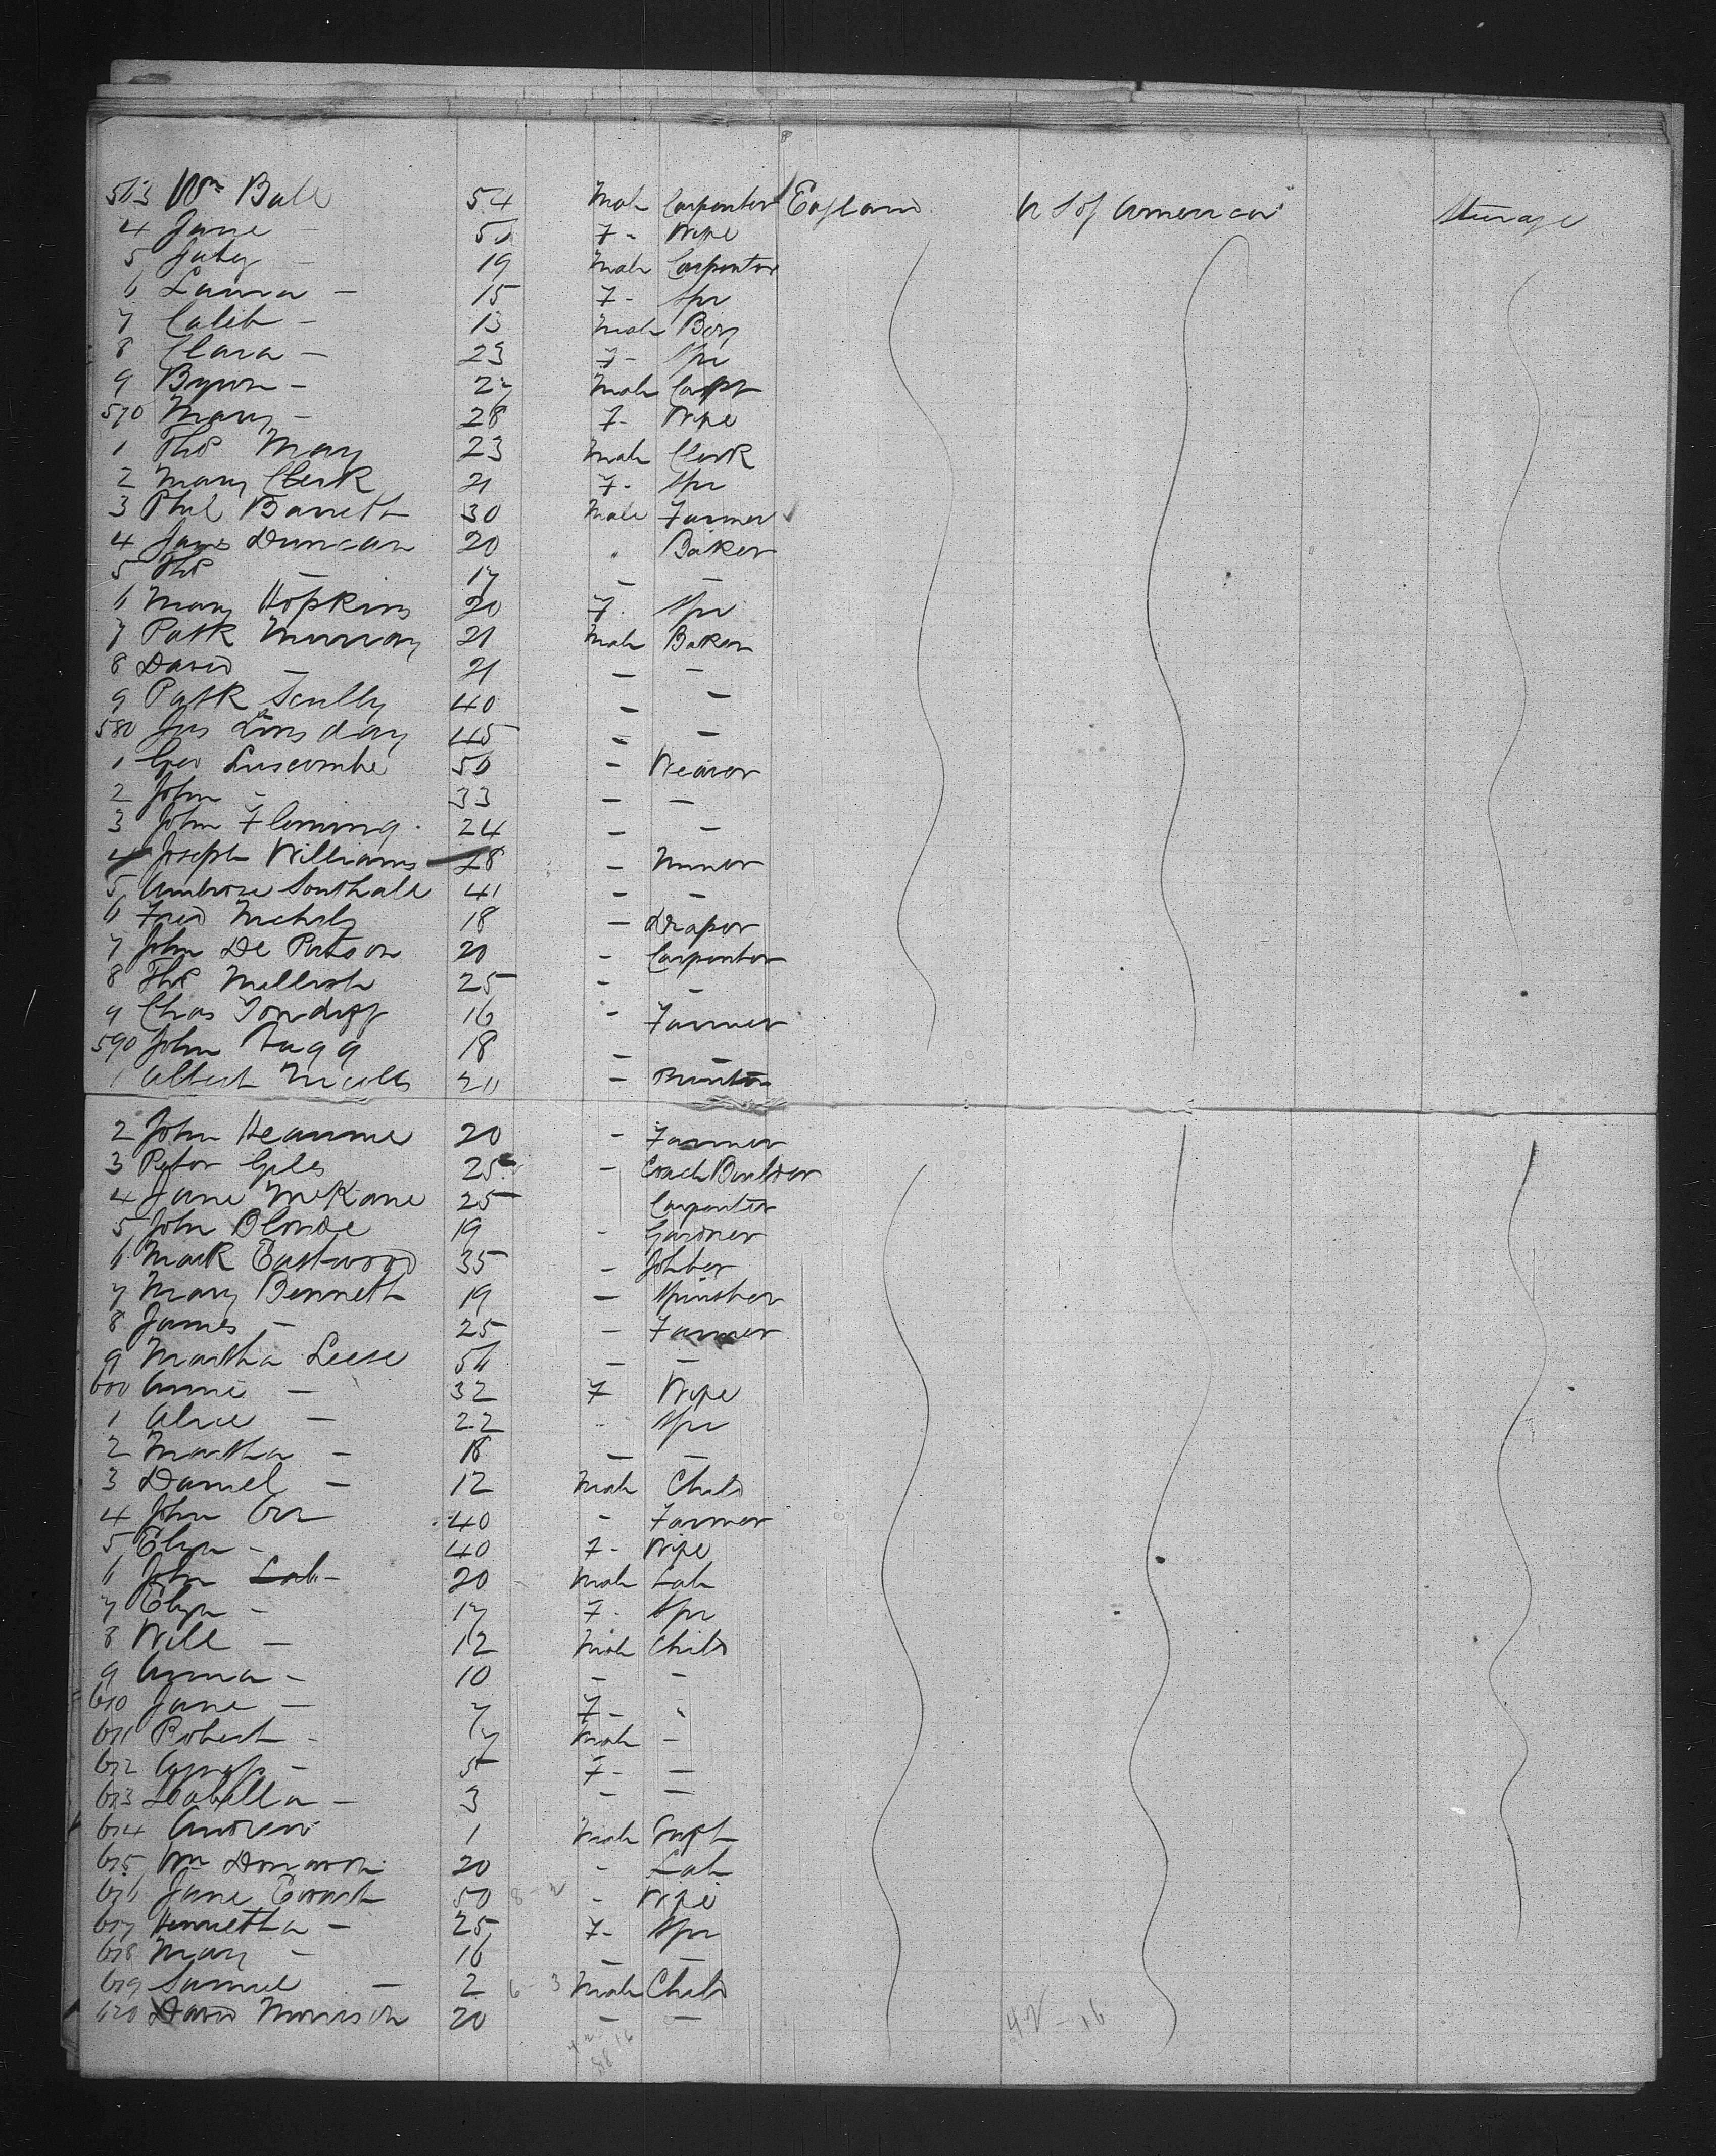 563 Wm Ball 54 Male Carpenter England U S of America Steerage
4 Jane - 50 F- Wife
5 19 Male Carpenter
6 Laura - 15 F- Spr
7 Calib - 13 Male Boy
8 Clara - 23 F- Spr
9 Byron - 27 Male Carpt
570 Mary - 28 F- Wife
1 Thos May 23 Male Clerk
2 Mary Clerk 21 F- Spr
3 Phil Barrett 30 Male Farmer
4 James Duncan 20 " Baker
5 Thos - 17 - -
6 Mary Hopkins 20 F. Spr
7 Patk Murray 21 Male Baker
8 David - 21 - -
9 Patk Scully 40 - -
580 Jas Linsday 45 - -
1 Geo Luscombe 50 - Weaver
2 John - 33 - -
3 John Fleming 24 - -
4 Joseph Williams 28 - Miner
5 Ambrose Southall 41 - -
6 Fred 18 - Draper
7 John De 20 - Carpenter
8 Thos Mellish 25 - -
9 Chas 16 - Farmer
590 John Fugg 18 - -
1 Albert Nicolls 20 -
2 John Heaume 20 - Farmer
3 Peter Giles 25 - Coach Builder
4 Jane McKane 25 Carpenter
5 John Blonde 19 - Gardner
6 Mark Eastwood 35 - Jobber
7 Mary Bennett 19 - Spinster
8 James - 25 - Farmer
9 Martha Leese 56 - -
600 Annie - 32 F Wife
1 Alice - 22 " Spr
2 Martha - 18 - -
3 Daniel - 12 Male Child
4 John Orr 40 - Farmer
5 Eliza - 40 F- Wife
6 John Lab - 20 Male Lab
7 Eliza - 17 F- Spr
8 Will - 12 Male Child
9 Anna - 10 - -
610 Jane - 7 F- "
611 Robert - 7 Male -
612 - 5 F- -
613 Isabella - 3 - -
614 Andrew 1 Male Inft
615 Wm 20 - Lab
616 Jane 50 - Wife
617 Henrietta - 25 F- Spr
618 Mary - 16 - -
619 Samuel - 2 6 - 3 Male Child
620 David Morrison 20 - -
42 - 16